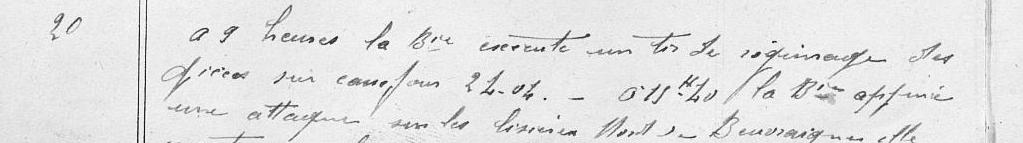 20 a 9 heures la Bie execute un tir de régimage des
pièces sur carrefour 24-04. - à 15H40 la Bie appuie
une attaque sur les lisières Nord de Beuvraignes elle